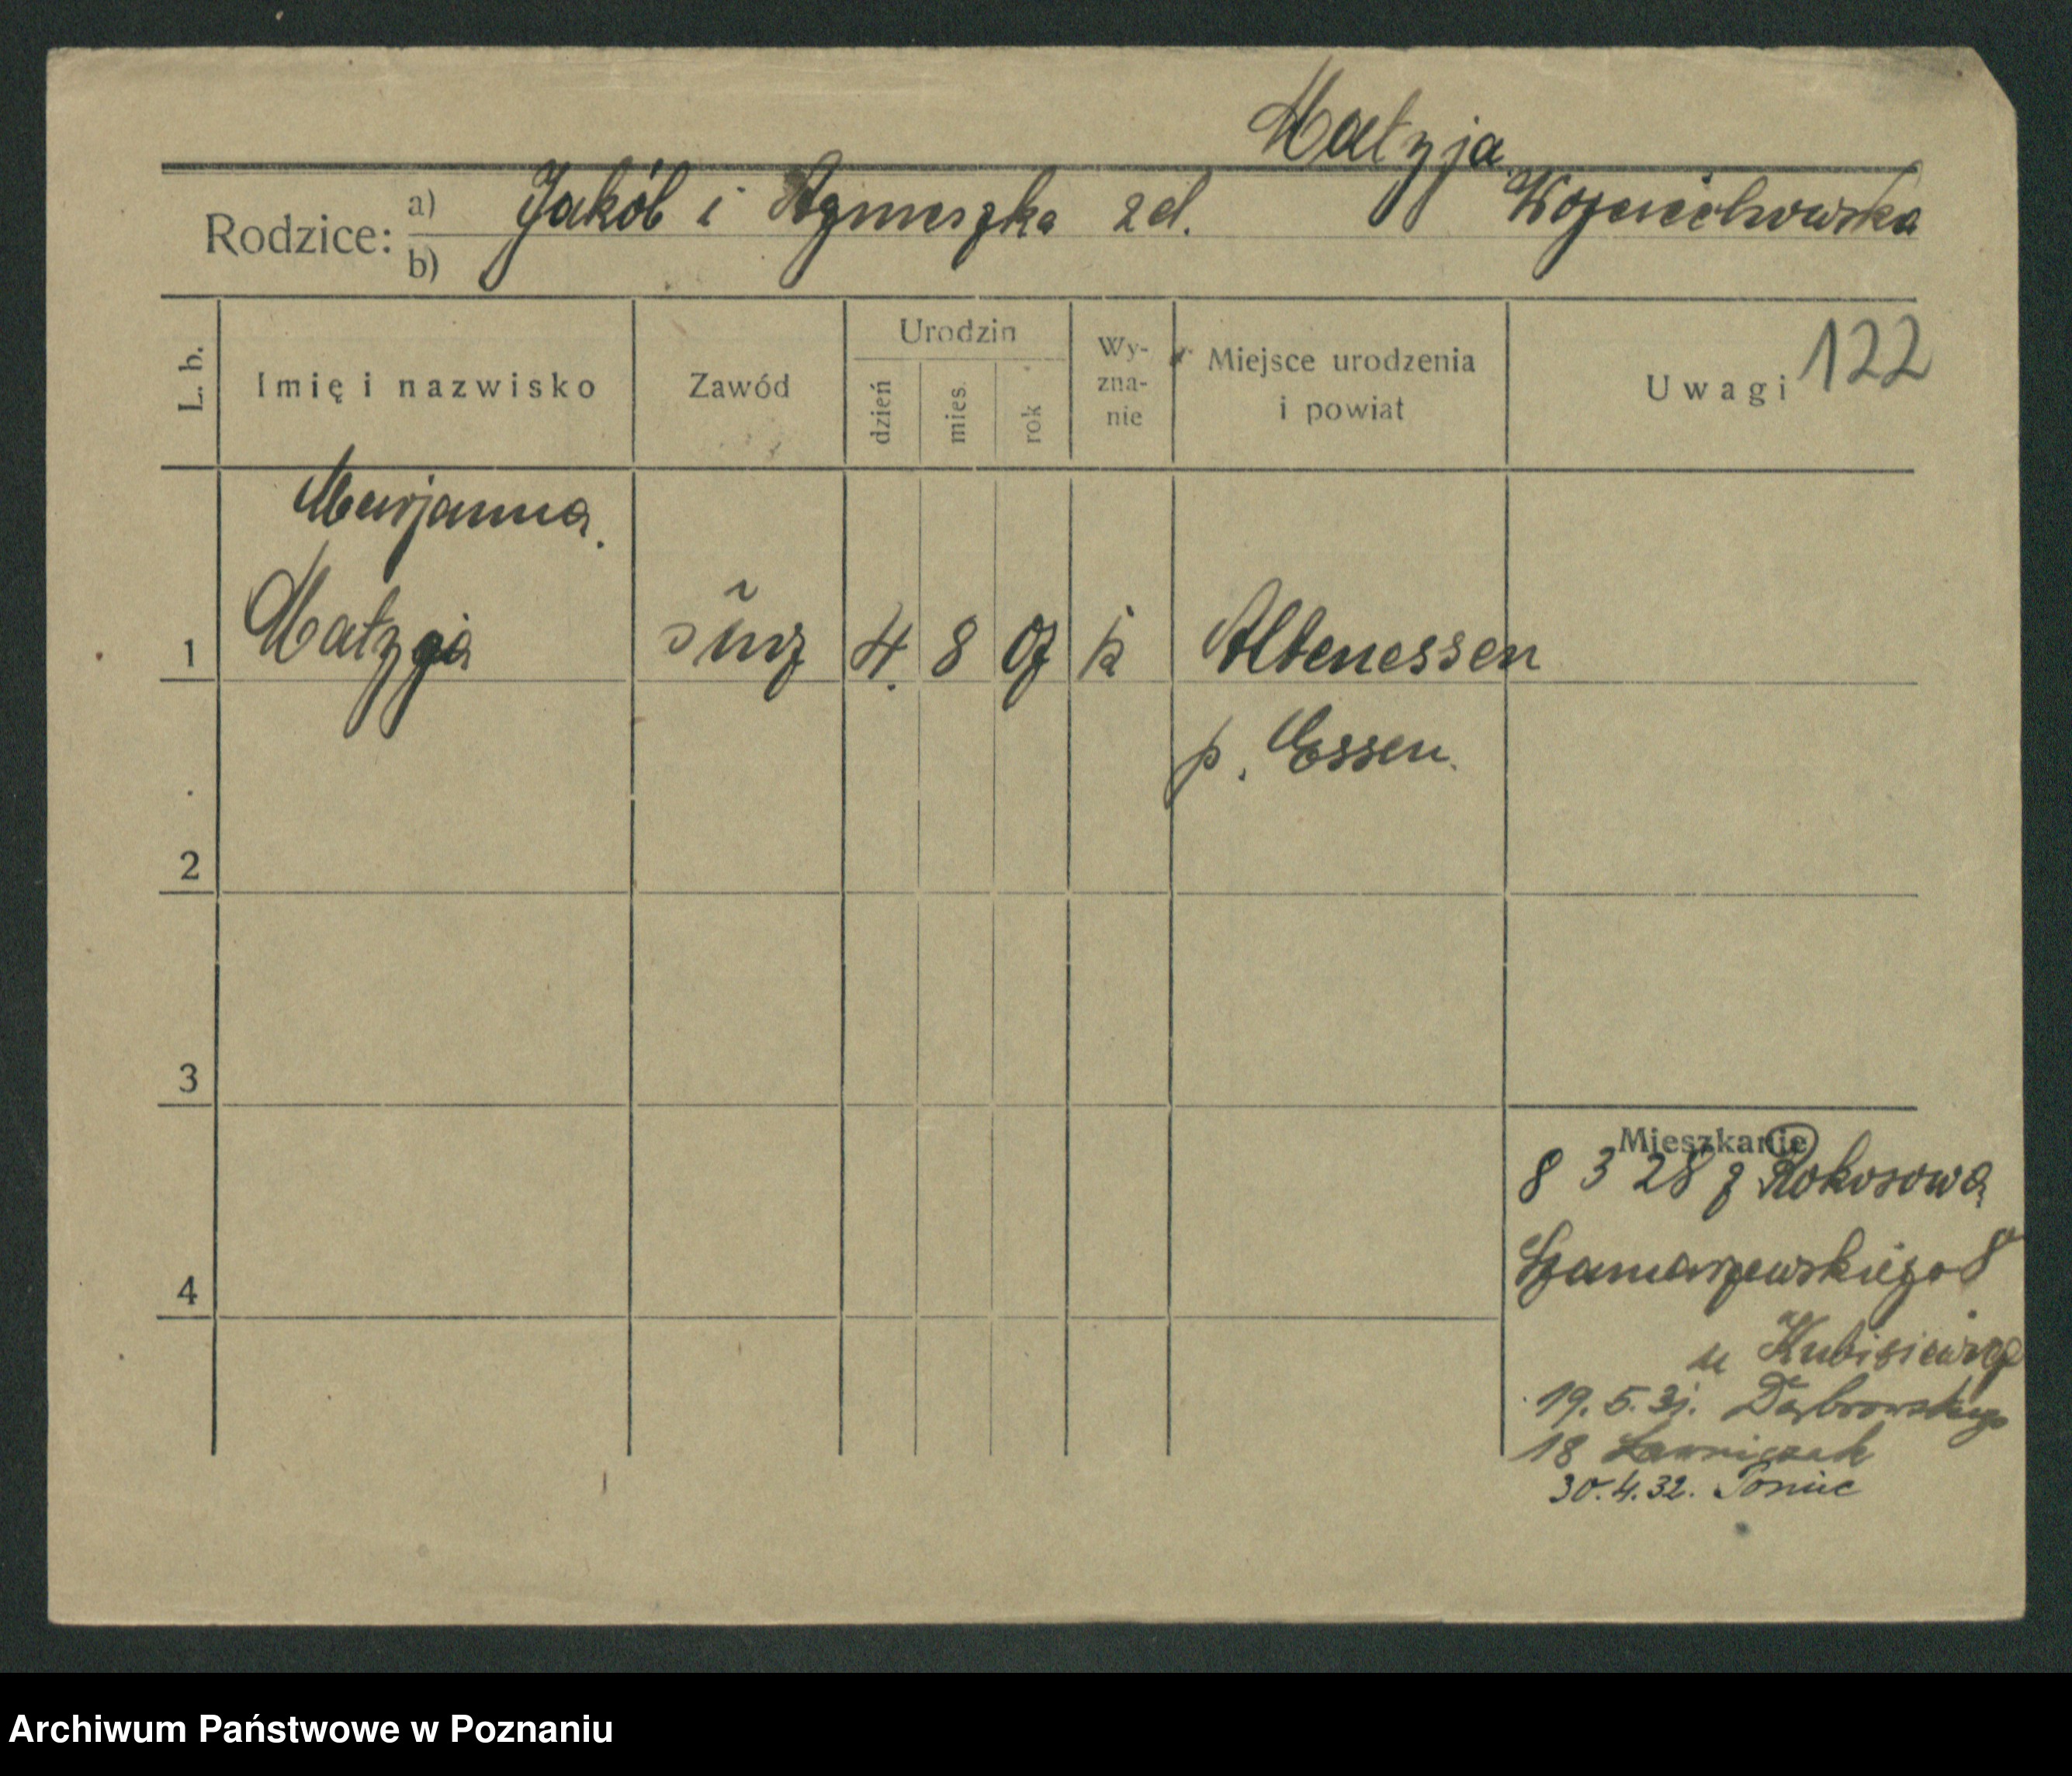 Małzja
Rodzice: a) Jakób i Agnieszka zd. Wojciechowska
b)
L. b. Imię i nazwisko Zawód Urodzin dzień mies. rok Wy-zna-nie Miejsce urodzenia i powiat Uwagi 122
Marjanna.
1 Małzja 4. 8 07 k Altenessen
p. Essen.
2
3
Mieszkanie
8 3 28 z Rokosowa
4 Szamarzewskiego 8
u
19. 5. 31. Dąbrowskiego
18 Ławniczak
30. 4. 32. Poniec
Archiwum Państwowe w Poznaniu